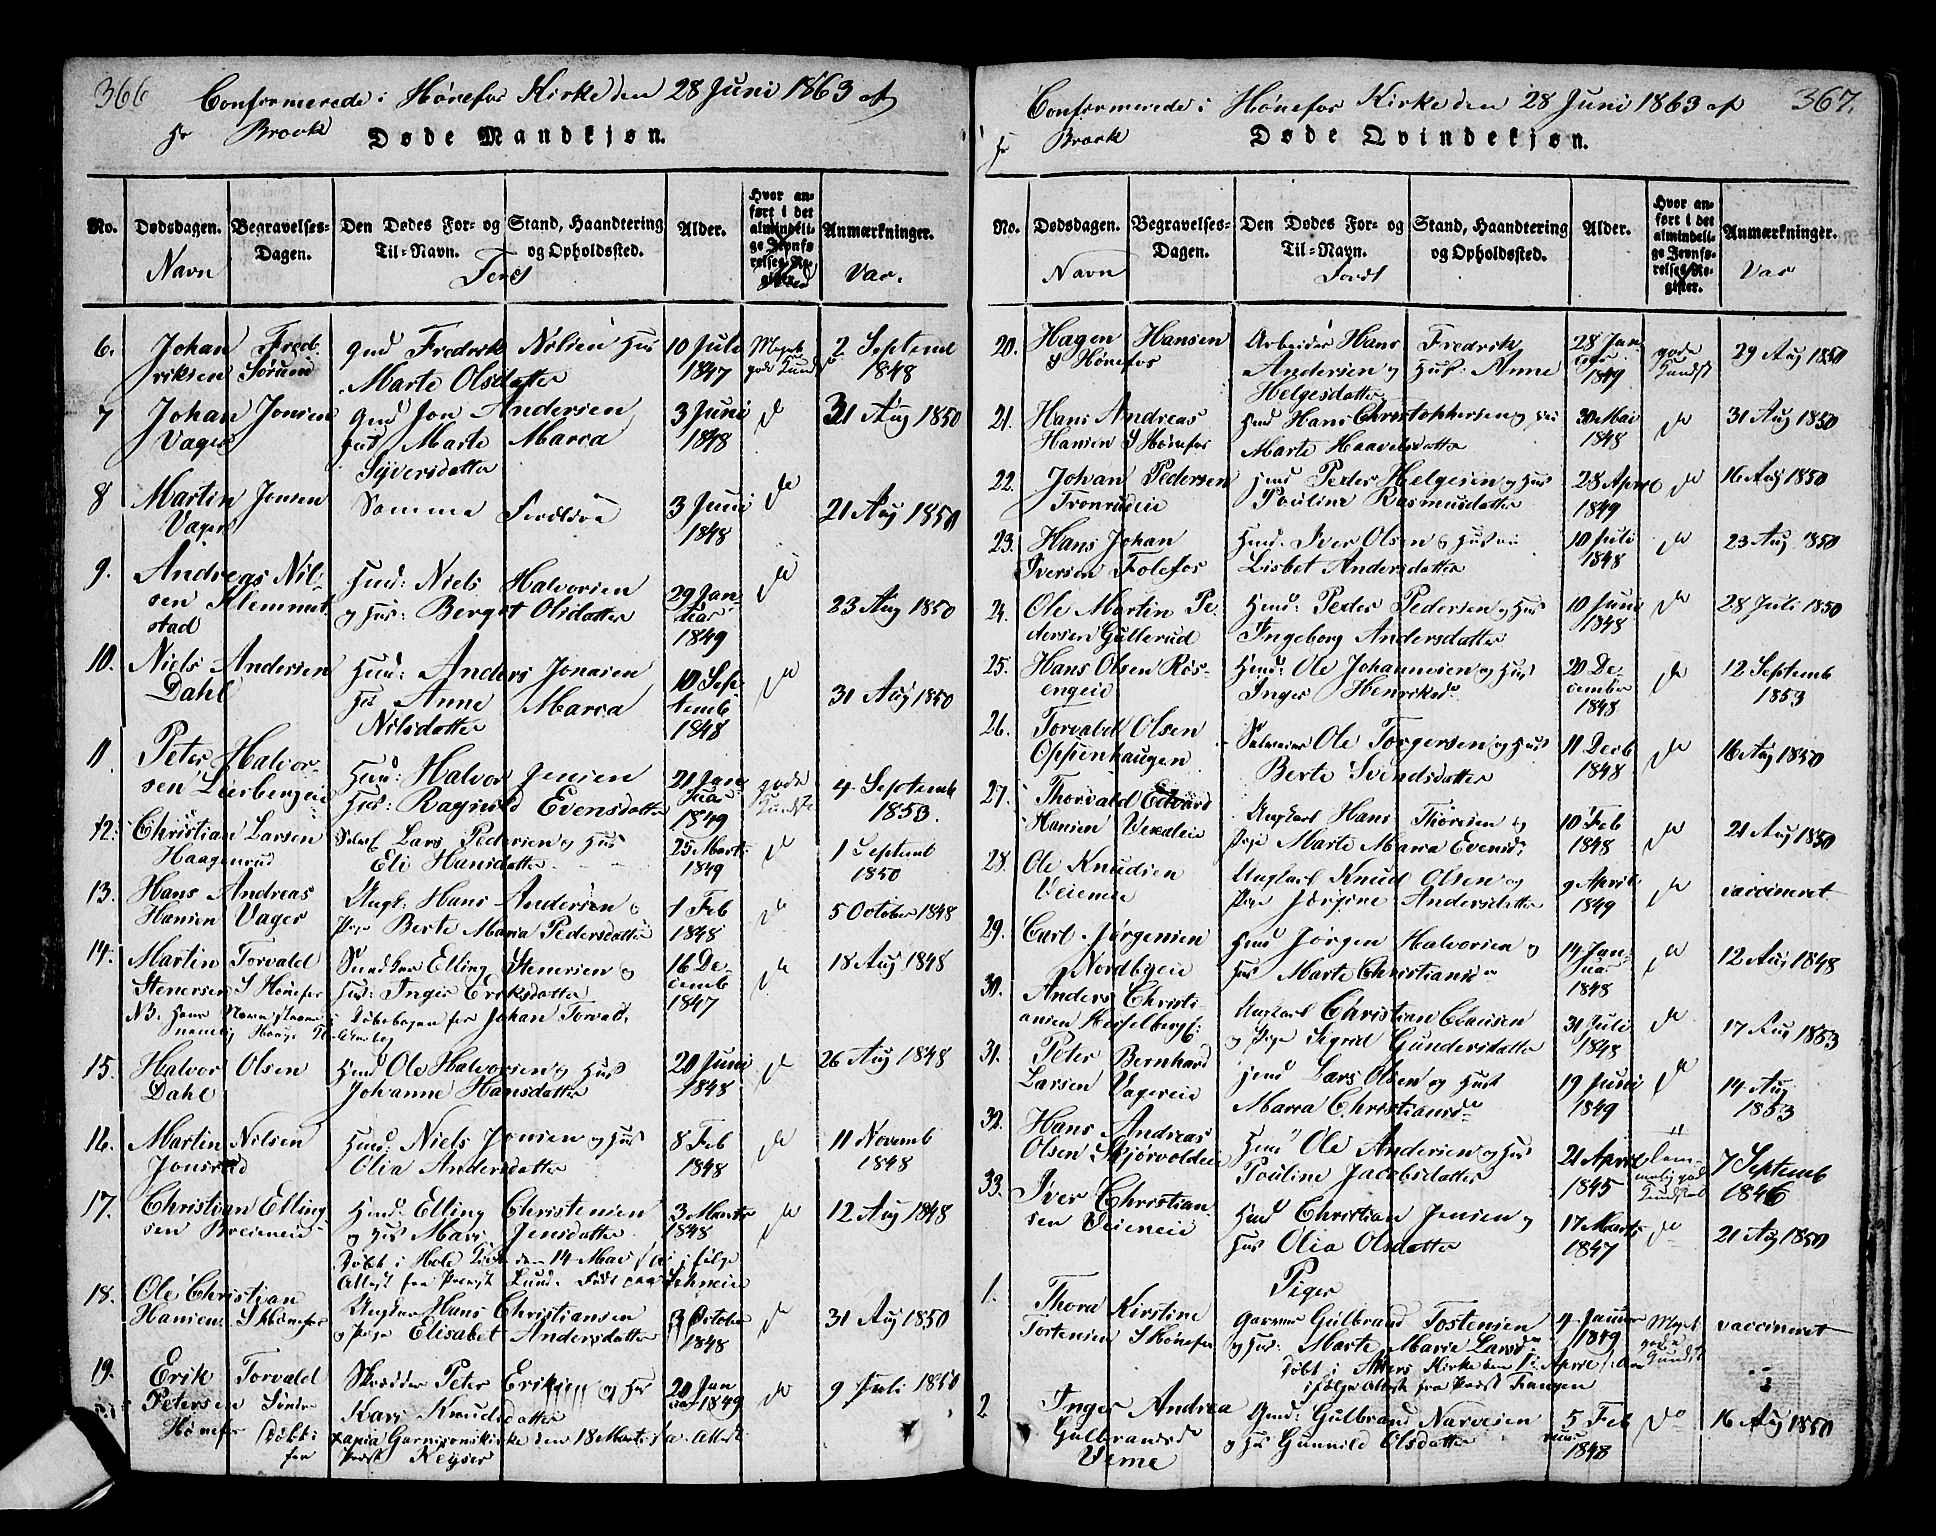 366
Confirmerede i Hønefos Kirke den 28 Juni 1863 af
Hr Brock
Døde Mandkjøn.
No.
Dødsdagen.
Navn
Begravelses-
Dagen.
Den Dødes For- og
Til-Navn.
Født
Stand, Haandtering
og Opholdssted.
Alder.
Hvor an-
ført i det
almindeli-
ge Jevnfø-
relses-Re-
gister.
Anmærkninger.
Vac.
6.
Johan Fred-
riksen Sørum
Gmd Fredrik Nilsen Hus
Marte Olsdatter
10 Juli
1847
Meget
gode Kundsk
2 Septemb
1848
7
Johan Jonsen
Vager
Gmd Jon Andersen
Hus Marte Maria
Syversdatter
3 Juni
1848
do
31 Aug 1850
8
Martin Jensen
Vager
Samme Forældre
3 Juni
1848
do
21 Aug 1850
9.
Andreas Nil-
sen Klemmet-
stad
Hmd: Niels Halvorsen
og Hus: Berget Olsdatter
29 Jan
uar
1849
do
23 Aug 1850
10.
Niels Andersen
Dahl
Hmd: Anders Jonasen
Hus Anne Maria
Nilsdatter
10 Sep-
temb
1848
do
31 Aug 1850
11
Peter Halvor-
sen Lierbergeie
Hmd: Halvor Jensen
Hus: Ragnild Evensdatter
21 Jan
uar
1849
gode
Kundsk
4 Septemb
1853.
12.
Christian Larsen
Haagenrud
Selvei Lars Pedersen og Hus
Eli Hansdatter
25 Marts
1849
do
1 Septemb
1850
13.
Hans Andreas
Hansen Vager
Ungk: Hans Andersen og
Pige Berte Maria Pedersdatter
1 Feb
1848
do
5 October 1848
14.
Martin Torvald
Stenersen S Hønefos
Elling Stenersen og
Hus: Inger Eriksdatter
16 De-
cemb
1847
do
18 Aug 1848
NB. Hans Navn staaer i Døbebogen for Johan Torvald,
15.
Halvor Olsen
Dahl
Hmd Ole Halvorsen og Hus
Johanne Hansdatter
20 Juni
1848
do
26 Aug 1848
16.
Martin Nilsen
Jonsrud
Hmd: Niels Jensen og Hus
Olia Andersdatter
8 Feb
1848
do
11 Novemb
1848
17.
Christian Elling-
sen Breieneie
Hmd: Elling Christensen
og Hus Mari Jensdatter
3 Marts
1848
do
12 Aug 1848
Døbt i Hole Kirke den 14 Mai ifølge
Attest fra Præst Lund. Født paa
18.
Ole Christian
Hansen S Hønefos
Ungkar Hans Christiansen
og Pige Elisabet Andersdatter
3 October
1848
do
31 Aug 1850
19.
Erik Torvald
Petersen Søndre
Hønefos
Skrædder Peter Eriksen og Hus
Kari Knudsdatter
20 Jan
uar 1849
do
9 Juli 1850
Døbt i Garnisonskirke den 18 Marts f a. Attest
fra Præst Keyser
367.
Confirmerede i Hønefos Kirke den 28 Juni 1863 af
Hr Brock
Døde Qvindekjøn.
No.
Dødsdagen.
Navn
Begravelses-
Dagen.
Den Dødes For- og
Til-Navn.
Født
Stand, Haandtering
og Opholdssted.
Alder.
Hvor an-
ført i det
almindeli-
ge Jevnfø-
relses-Re-
gister.
Anmærkninger.
Vac
20.
Hagen Hansen
S Hønefos
Arbeider Hans Fredrik
Andersen og Hus: Anne
Helgesdatter
28 Jan
uar
1849
gode
Kundsk
29 Aug 1850
21.
Hans Andreas
Hansen S Hønefos
Hmd Hans Christophersen og Hus
Marte Haavelsdatter
30 Mai
1848
do
31 Aug 1850
22.
Johan Pedersen
Tronrudeie
Hmd Peder Helgesen og Hus
Pouline Rasmusdatter
28 April
1849
do
16 Aug 1850
23.
Hans Johan
Iversen Folefos
Hmd: Iver Olsen og Hus
Lisbet Andersdatter
10 Juli
1848
do
23 Aug 1850
24.
Ole Martin Pe-
dersen Gullerud
Hmd: Peder Pedersen og Hus
Ingeborg Andersdatter
10 Juni
1848
do
28 Juli 1850
25.
Hans Olsen Røs-
engeie
Hmd: Ole Johannesen og Hus
Inger Henriksdr
20 De-
cember
1848
do
12 Septemb
1853
26.
Torvald Olsen
Oppenhaugen
Selveier Ole Torgersen og Hus
Berte Svendsdatter
11 Decb
1848
do
16 Aug 1850
27.
Thorvald Edvard
Hansen Vexaleie
Ungkarl Hans Thoresen og
Pige Marte Maria Evensd.
10 Feb
1848
do
21 Aug 1850
28.
Ole Knudsen
Veieneie
Ungkarl Knud Olsen og
Pige Jørgine Andersdatter
9 April
1849
do
vaccineret
29.
Carl Jørgensen
Nordbyeie
Hmd Jørgen Halvorsen og
Hus Marte Christiansdr
14 Jan-
uar
1848
do
12 Aug 1848
30.
Anders Christi-
ansen Hesselberg
Ungkarl Christian Clausen
og Pige Sigrid Gundersdatter
31 Juli
1848
do
1853
31.
Peter Bernhard
Larsen Vagereie
Hmd Lars Olsen og Hust
Maria Christiansdr
19 Juni
1849
do
14 Aug
1853
32.
Hans Andreas
Olsen Skjørvoldeie
Hmd Ole Andersen og Hus
Pouline Jacobsdatter
21 April
1845
Tem-
melig god
Kundskab
7 Septemb
1846
33.
Iver Christian-
sen Veieneie
Hmd Christian Jensen og
Hus Olia Olsdatter
17 Marts
1847
do
21 Aug 1850
Piger
1.
Thora Kirstine
Tostensen S Hønefos
Garver Gulbrand Tostensen
og Hus: Marte Marie Larsdr
4 Januar
1849
Meget
gode
Kundsk
vaccineret
Døbt i Akers Kirke den 1 April
ifølge Attest fra Præst
2
Inger Andrea
Gulbrandsdr
Veme
Gmd: Gulbrand Narvesen
og Hus Gunnild Olsdatter
5 Feb
ruar
1848
do
16 Aug 1850